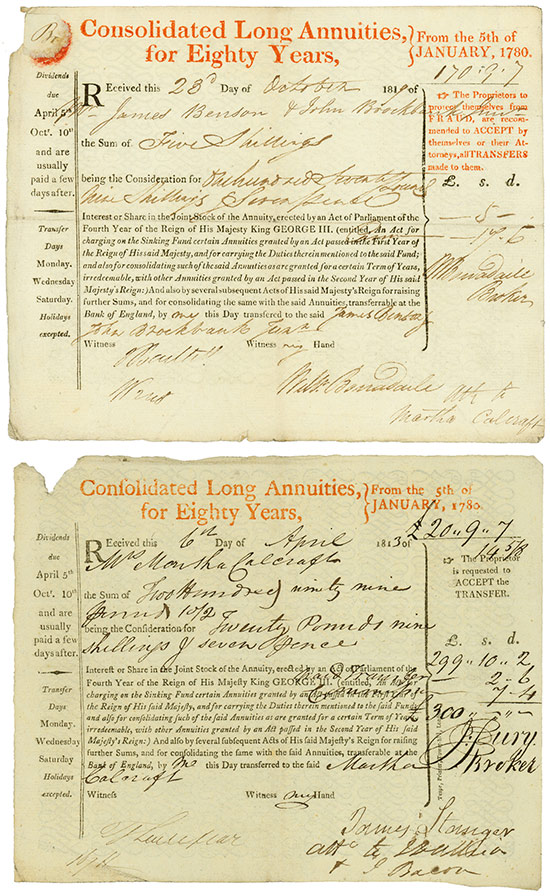 Consolidated Long Annuities,
for Eighty Years,
From the 5th of
JANUARY, 1780.
170 " 9 " 7
Dividends
due
April 5th
Oct. 10th
and are
usually
paid a few
days after.
Transfer
Days
Monday.
Wednesday
Saturday.
Holidays
excepted.
Received this 23d Day of October 181
James Benson & John Brockbank
the Sum of Five Shillings
being the Consideration for One hundred & Seventy Pounds
Nine Shillings & Seven Pence
Interest or Share in the Joint Stock of the Annuity, erected by an Act of Parliament of the
Fourth Year of the Reign of His Majesty King GEORGE III. (entitled, An Act for
charging on the Sinking Fund certain Annuities granted by an Act passed in the First Year of
the Reign of His said Majesty, and for carrying the Duties therein mentioned to the said Fund;
and also for consolidating such of the said Annuities as are granted for a certain Term of Years,
irredeemable, with other Annuities granted by an Act passed in the Second Year of His said
Majesty's Reign:) And also by several subsequent Acts of His said Majesty's Reign for raising
further Sums, and for consolidating the same with the said Annuities, transferable at the
Bank of England, by me this Day transferred to the said James Benson &
John Brockbank
Witness Witness my Hand
Martha Calcraft
☞ The Proprietors to
protect themselves from
FRAUD, are recom-
mended to ACCEPT by
themselves or their At-
torneys, all TRANSFERS
made to them.
£. s. d.
— 5 —
17 . 6
Broker
Consolidated Long Annuities,
for Eighty Years,
From the 5th of
JANUARY, 1780.
£ 20 " 9 " 7
14 5/8
Dividends
due
April 5th
Oct. 10th
and are
usually
paid a few
days after.
Transfer
Days
Monday.
Wednesday
Saturday.
Holidays
excepted.
Received this 6th Day of April 1813 of
Mrs Martha Calcraft
the Sum of Two Hundred & ninety nine
Pounds 10/2
being the Consideration for Twenty Pounds nine
Shillings & seven Pence
Interest or Share in the Joint Stock of the Annuity, erected by an Act of Parliament of the
Fourth Year of the Reign of His Majesty King GEORGE III. (entitled, An Act for
charging on the Sinking Fund certain Annuities granted by an Act passed in the First Year of
the Reign of His said Majesty, and for carrying the Duties therein mentioned to the said Fund;
and also for consolidating such of the said Annuities as are granted for a certain Term of Years,
irredeemable, with other Annuities granted by an Act passed in the Second Year of His said
Majesty's Reign:) And also by several subsequent Acts of His said Majesty's Reign for raising
further Sums, and for consolidating the same with the said Annuities, transferable at the
Bank of England, by me this Day transferred to the said Martha
Calcraft
Witness Witness my Hand
James Stanger
& J Bacon
☞ The Proprietor
is requested to
ACCEPT the
TRANSFER.
£. s. d.
299 " 10 " 2
2 - 6
7 - 4
£ 300 " - " -
J Bury
Broker